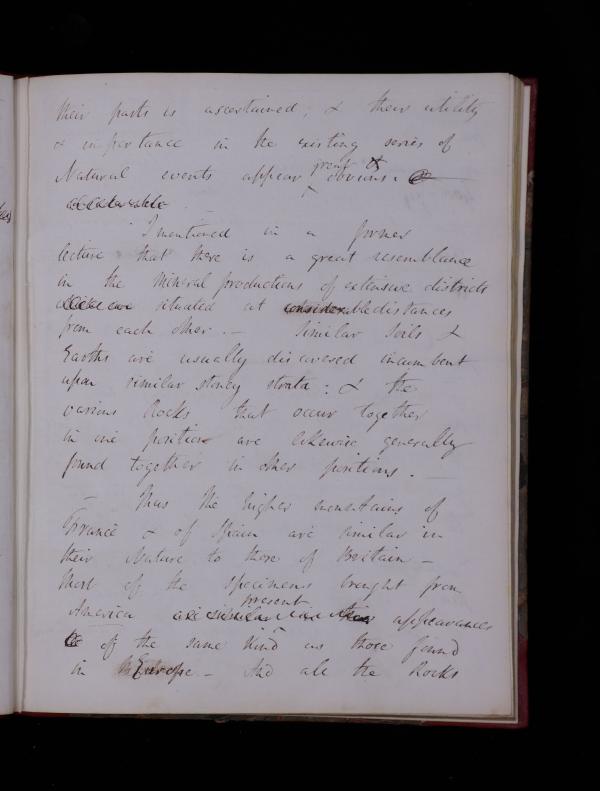 their parts is ascertained; & their utility
& importance in the existing series of
great &
Natural events appear obvious.
I mentioned in a former
lecture that there is a great resemblance
in the Mineral productions of extensive districts
situated at considerable distances
from each other. — Similar Soils &
Earths are usually discovered incumbent
upon similar stoney strata: & the
various Rocks that occur together
in one position are likewise generally
found together in other positions. —
— Thus the higher mountains of
France & of Spain are similar in
their Nature to those of Britain —
Most of the specimens brought from
present
America are similar appearances
of the same kind as those found
in Europe. — And all the Rocks